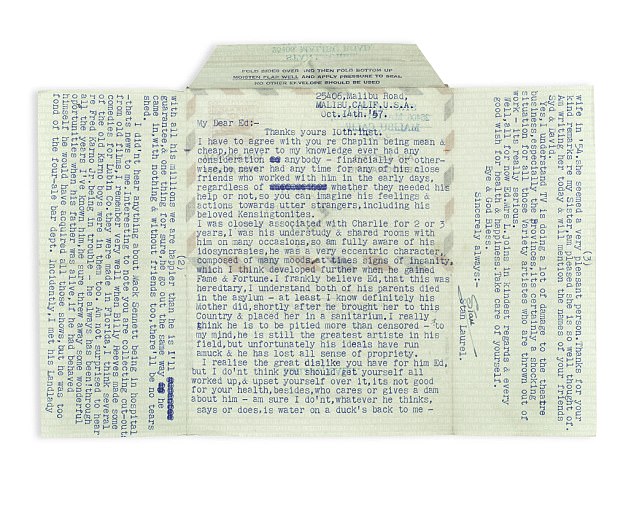 FOLD SIDES OVER AND THEN FOLD BOTTOM UP
MOISTEN FLAP WELL AND APPLY PRESSURE TO SEAL
NO OTHER ENVELOPE SHOULD BE USED
25406,Malibu Road,
MALIBU,CALIF.U.S.A.
Oct.14th.'57.
My Dear Ed:-
Thanks yours 10th.inst.
I have to agree with you re Chaplin being mean &
cheap,he never to my knowledge ever had any
consideration anybody - financially or other-
wise,he never had any time for any of his close
friends who worked with him in the early days,
regardless of whether they needed his
help or not,so you can imagine his feelings &
actions towards utter strangers,including his
beloved Kensingtonites.
I was closely associated with Charlie for 2 or 3
years,I was his understudy & shared rooms with
him on many occasions,so am fully aware of his
idiosyncrasies,he was a very eccentric character,
composed of many moods,at times signs of insanity,
which I think developed further when he gained
Fame & Fortune.I frankly believe Ed,that this was
hereditary,I understand both of his parents died
in the asylum - at least I know definitely his
Mother did,shortly after he brought her to this
Country & placed her in a sanitarium,I really
think he is to be pitied more than censored - to
my mind,he is still the greatest artiste in his
field,but unfortunately his ideals have run
amuck & he has lost all sense of propriety.
I realise the great dislike you have for him Ed,
but I do'nt think you should get yourself all
worked up,& upset yourself over it,its not good
for your health,besides,who cares or gives a dam
about him - am sure I do'nt,whatever he thinks,
says or does,is water on a duck's back to me -
(2)
with all his millions we are happier than he is I'll
guarantee,& one thing for sure,he go out the same way he
came in,with nothing & without friends too,there'll be no tears
shed.
I did'nt hear anything about Mack Sennett being in hospital
-thats news to me.Interesting to note you are collecting cut-outs
from old films,I remember very well when Billy Reeves made some
comedies for Lubin Co.they were made in Florida,I think several
of the old Karno boys were in them too. Am not surprised to hear
re Fred Karno Jr.being in trouble - he always has been,through
all the years I've known him,he sure threw away some wonderful
opportunities when his father was alive,if he had behaved
himself he would have acquired all those shows,but he was too
fond of the four-ale bar dept. Incidently,I met his Landlady
(3)
wife in '54,she seemed a very pleasant person.Thanks for your
kind remarks re my Sister,am pleased she is so well thought of.
Am writing her today & will mention the names of your friends
Syd & Lavid.
Yes, I understand TV is doing a lot of damage to the theatre
business,especially in the Provinces,its certainly a shocking
situation for all those Variety artistes who are thrown out of
work - its really serious.
Well,all for now Ed.Mr L.joins in kindest regards & every
good wish for health & happiness.Take care of yourself.
Bye & God Bless.
Sincerely always:-
Stan
Stan Laurel.